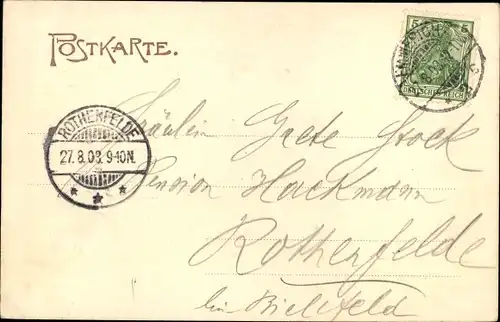 POSTKARTE.
5 5
DEUTSCHES REICH
EMMERICH
ROTHENFELDE
27.8.03. 9-10N.
Fräulein Grete Stock
Pension Hackmann
Rothenfelde
bei Bielefeld